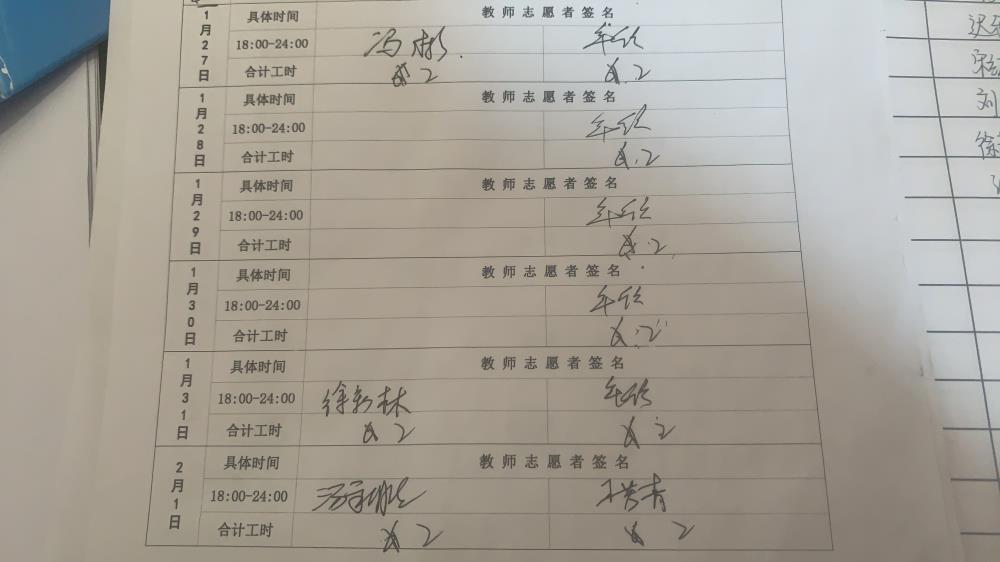 1月27日
具体时间 教师志愿者签名
18:00-24:00 冯彬
合计工时 2 2
1月28日
具体时间 教师志愿者签名
18:00-24:00
合计工时 2
1月29日
具体时间 教师志愿者签名
18:00-24:00
合计工时 2
1月30日
具体时间 教师志愿者签名
18:00-24:00
合计工时 2
1月31日
具体时间 教师志愿者签名
18:00-24:00
合计工时 2 2
2月1日
具体时间 教师志愿者签名
18:00-24:00
合计工时 2 2
刘